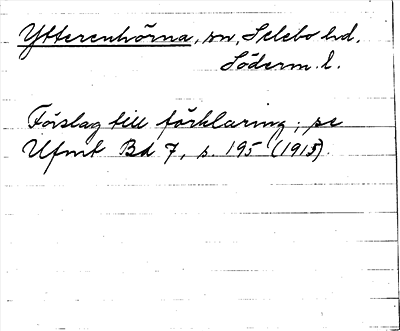 Ytterenhörna, sn, Selebo hd.
Söderm. l.
Förslag till förklaring; se
Ufmt Bd 7, s. 195 (1915).